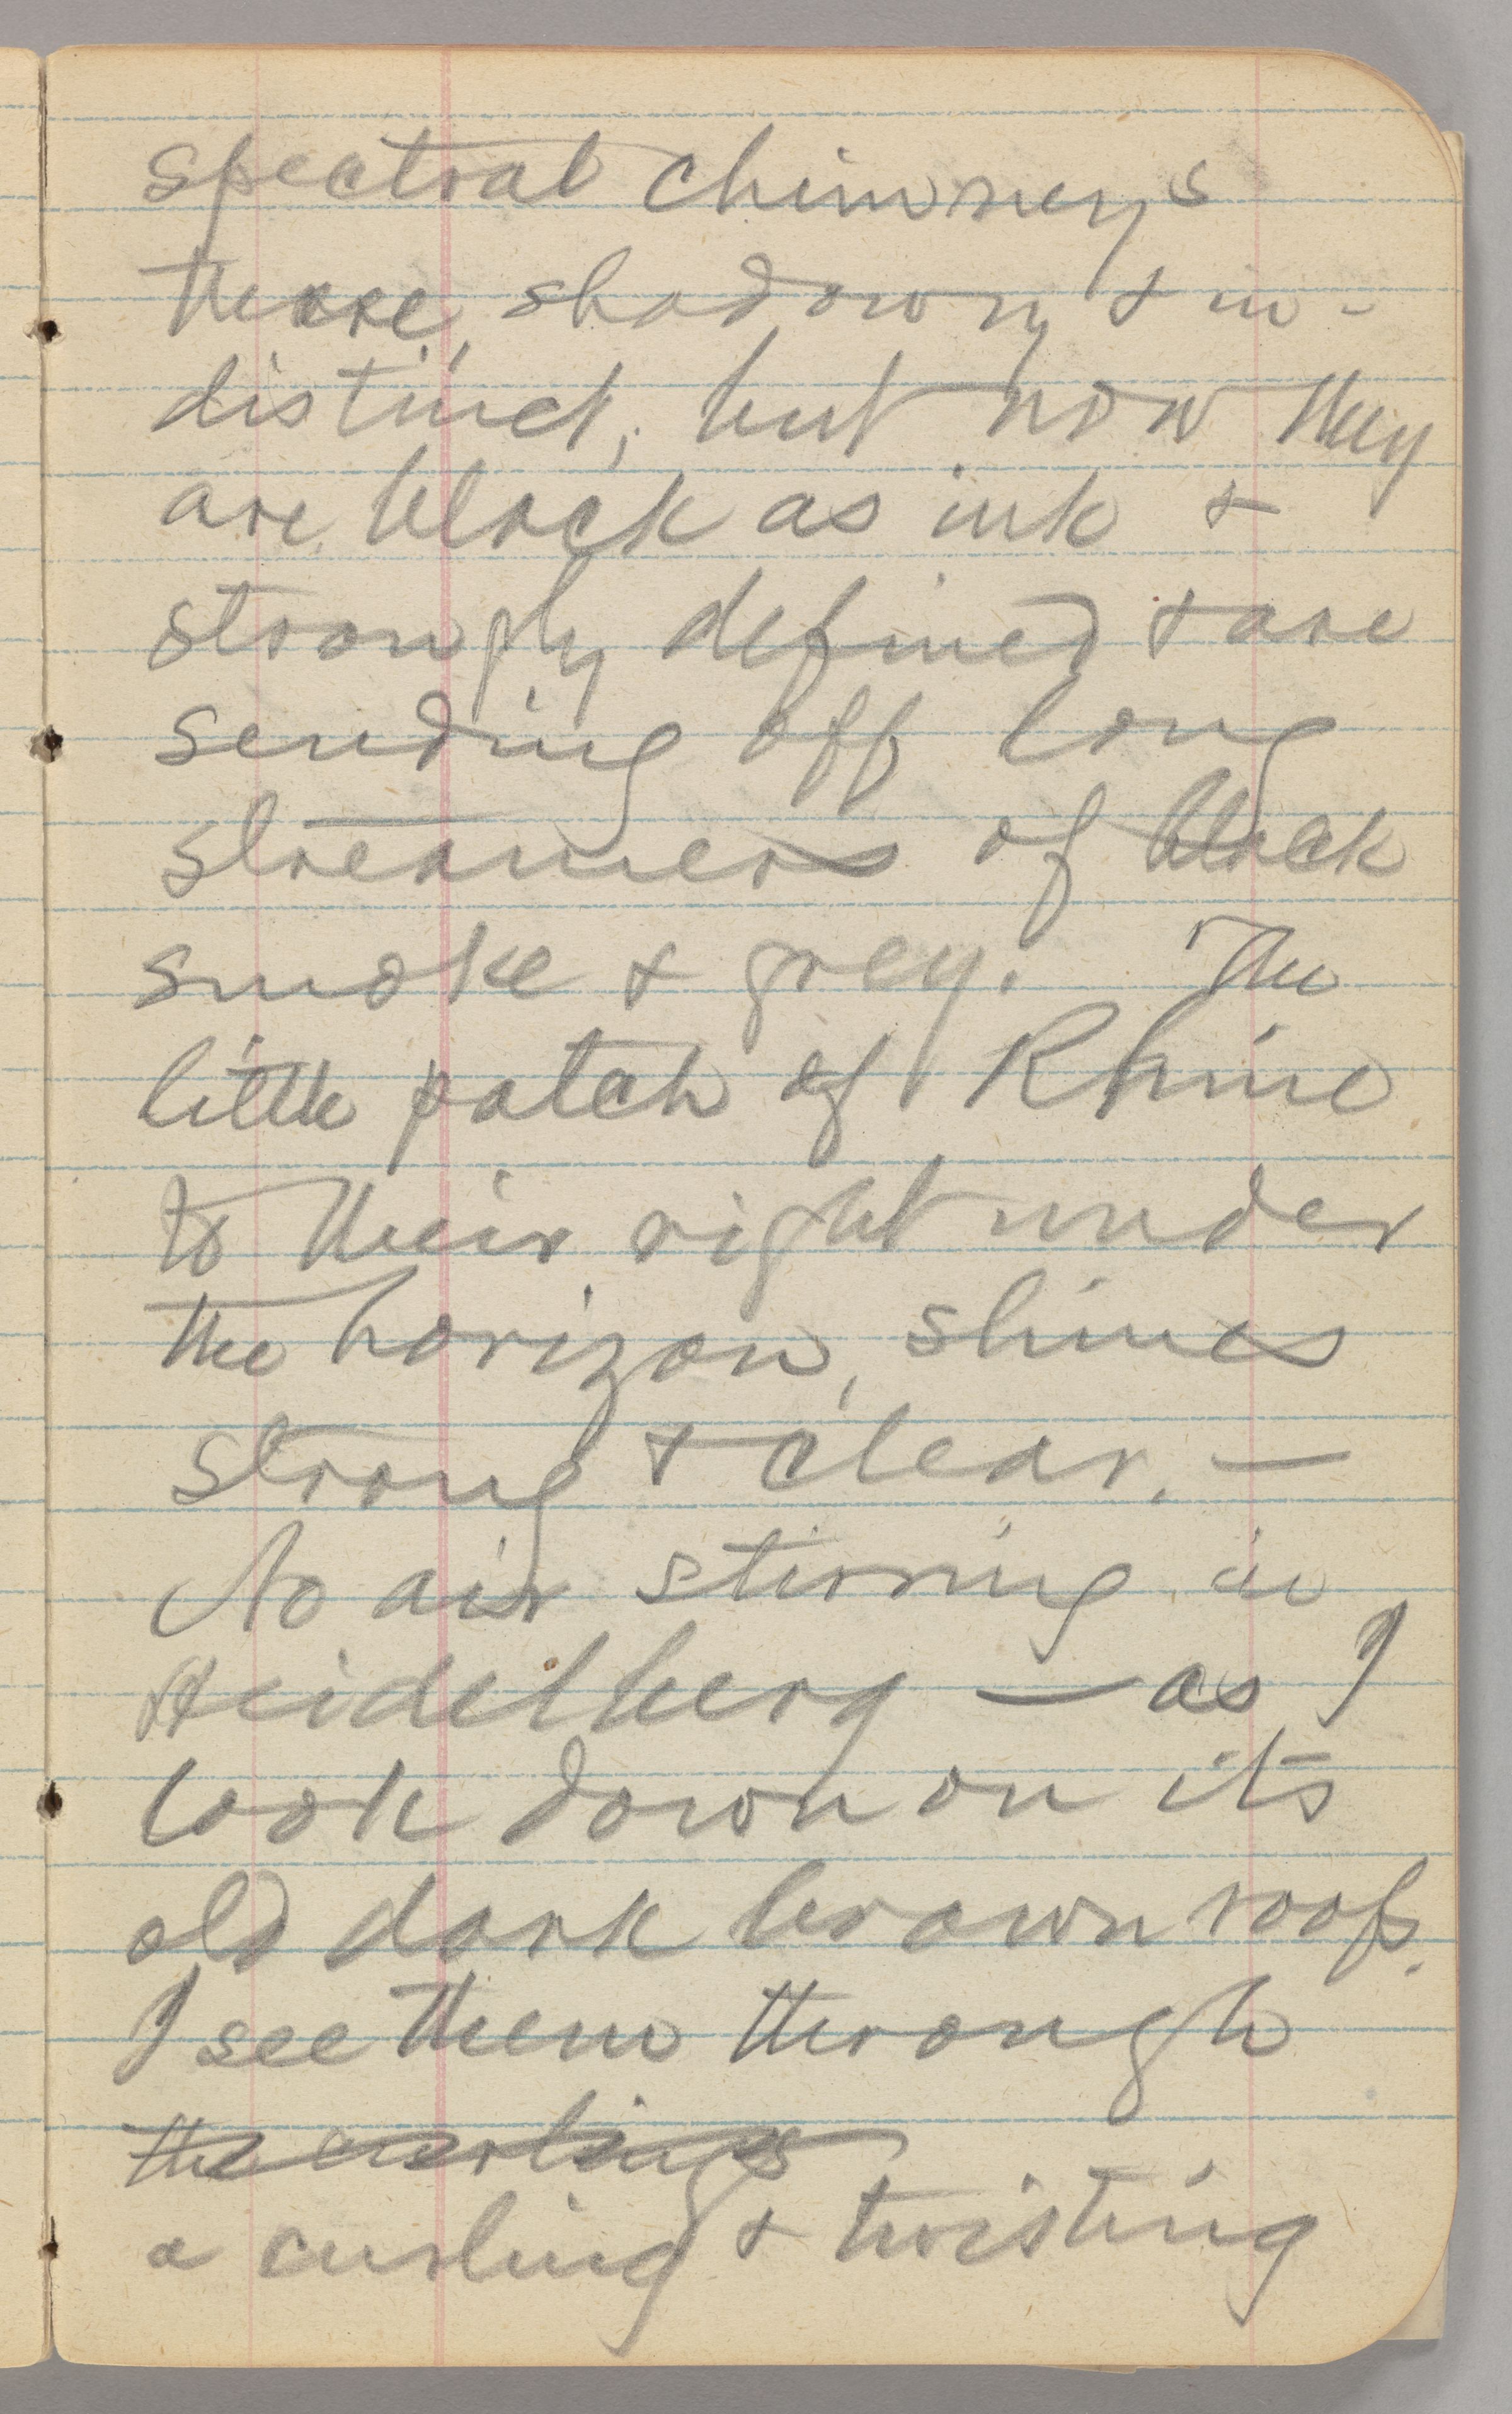 spectral chimneys
there, shadowy & in-
distinct, but now they
are black as ink &
strongly defined & are
sending off long
streamers of black
smoke & grey. The
little patch of Rhine
to their right under
the horizon, shines
strong & clear. —
No air stirring in
Heidelberg — as I
look down on its
old dark brown roofs.
I see them through
the curlings
a curling & twisting